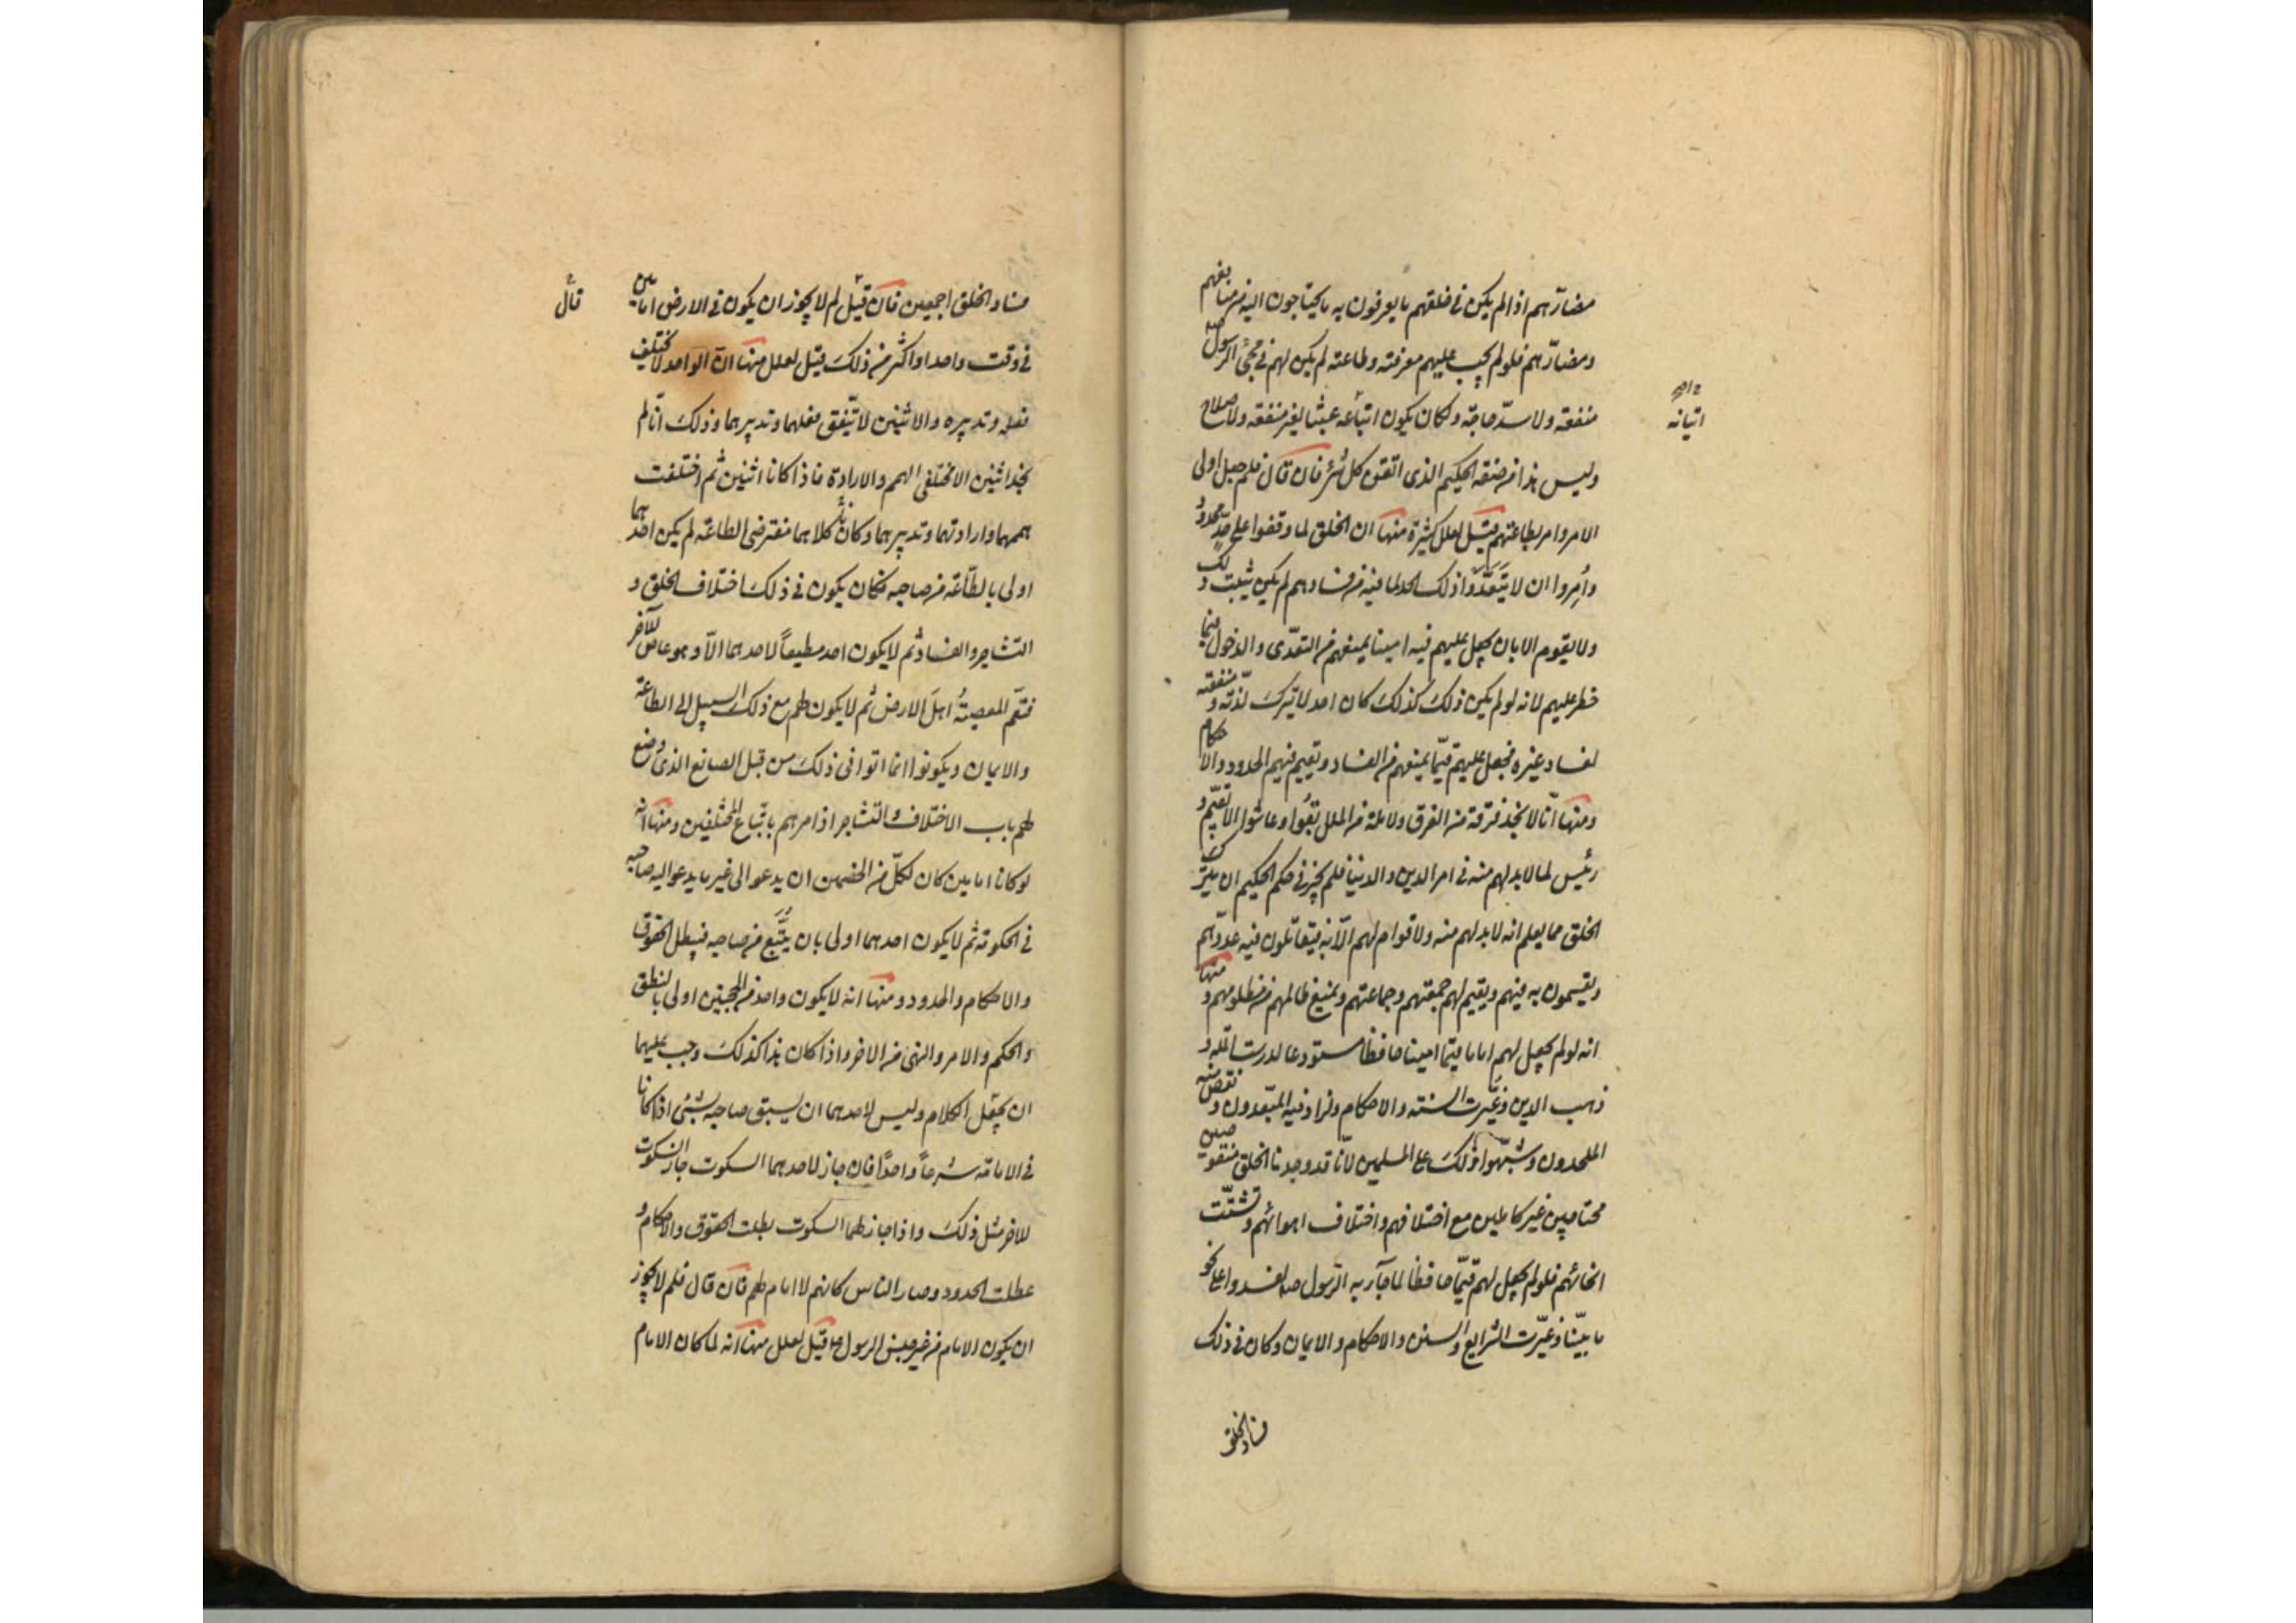 مضارهم اذا لم يكن في خلقهم ما يعرفون به ما يحتاجون اليه من منافعهم
ومضارّهم فلو لم يجب عليهم معرفته وطاعته لم يكن لهم في مجئ الرسول صه
منفعة ولا سدّ حاجة ولكان يكون اتيانه عبثا لغير منفعة ولا صلاح
اتيانه
وليس هذا من صفة الحكيم الذى اتقن كل شئ فان قال فلم جعل اولى
الامر وامر بطاعتهم قيل لعلل كثيرة منها ان الخلق لما وقفوا على حدّ محدود
وأُمِروا ان لا يَتَعَدَّوا ذلك الحد لما فيه من فسادهم لم يكن يثبت ذلك
ولا يقوم الا بان يجعل عليهم فيه امينا يمنعهم من التعدّى والدخول فيما
خطر عليهم لانه لو لم يكن ذلك كذلك كان احد لا يترك لذّته و منفعته
لفساد غيره فجعل عليهم قيّما يمنعهم من الفساد ويقيم فيهم الحدود والاحكام
ومنها انّا لا نجد فرقة من الفرق ولا ملة من الملل بقُوا وعاشوا الا بقيّم و
رئيس لما لا بد لهم منه في امر الدين والدنيا فلم يجز في حكم الحكيم ان يترك
الخلق مما يعلم انه لا بد لهم منه ولا قوام لهم الّا به فيقاتلون فيه عدوّهم
ويقسمون به فيئهم ويقيم لهم جمعتهم وجماعتهم ويمنع ظالمهم من مظلومهم و منها
انه لو لم يجعل لهم اماما قيّما امينا حافظا مستودعا لدرست الملة و
ذهب الدين وغُيّرت السنة والاحكام ولزاد فيه المبتدعون و نقص منه
الملحدون وشبّهوا ذلك على المسلمين لأنّا قد وجدنا الخلق منقوصين
محتاجين غير كاملين مع اختلافهم واختلاف اهوائهم و تشتّت
انحائهم فلو لم يجعل لهم قيّما حافظا لما جآء به الرّسول صه لفسدوا على نحو
ما بيّنّا وغيّرت الشرايع والسنن والاحكام والايمان وكان في ذلك
فساد الخلق
فساد الخلق اجمعين فان قيل لم لا يجوز ان يكون في الارض امامين
قال
في وقت واحد او اكثر من ذلك قيل لعلل منها انّ الواحد لا يختلف
فعله وتدبيره والاثنين لا يتّفق فعلهما وتدبيرهما وذلك انّا لم
نجد اثنين الا مختلفى الهمم والارادة فاذا كانا اثنين ثم اختلفت
هممهما وارادتهما وتدبيرهما وكانا كلاهما مفترضى الطاعة لم يكن احدهما
اولى بالطّاعة من صاحبه فكان يكون في ذلك اختلاف الخلق و
التشاجر والفساد ثم لا يكون احد مطيعاً لاحدهما الّا وهو عاص للآخر
فتعمّ المعصيةُ اهلَ الارض ثم لا يكون لهم مع ذلك السبيل الى الطاعة
والايمان ويكونوا انما اتوا في ذلك من قبل الصانع الذى وضع
لهم باب الاختلاف والتشاجر اذ امرهم باتّباع المختلفين ومنها انه
لو كانا امامين كان لكلّ من الخصمين ان يدعوا الى غير ما يدعو اليه صاحبه
في الحكومة ثم لا يكون احدهما اولى بان يُتَّبع من صاحبه فيبطل الحقوق
والاحكام والحدود ومنها انه لا يكون واحد من الحجتين اولى بالنطق
والحكم والامر والنهى من الاخر واذا كان هذا كذلك وجب عليهما
ان الكلام وليس لاحدهما ان يسبق صاحبه بشئ اذا كانا
في الامامة شرعاً واحدًا فان جاز لاحدهما السكوت جاز السّكوت
للاخر مثل ذلك واذا جاز لهما السكوت بطلت الحقوق والاحكام و
عطلت الحدود وصار الناس كانهم لا امام لهم فان قال فلم لا يجوز
ان يكون الامام من غير جنس الرسول صه قيل لعلل منها انه لما كان الامام